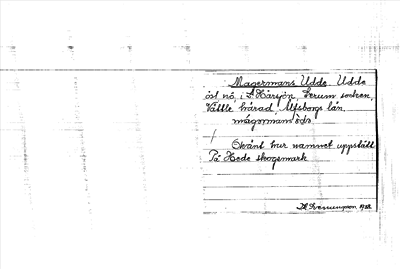 Magermans Udde. Udde
öst nå, i S. Härsjön, Lerum socken,
Vättle härad Älfsborgs län.
mágərman óds
/
Okänt hur namnet uppstått
På Hede skogsmark
1932